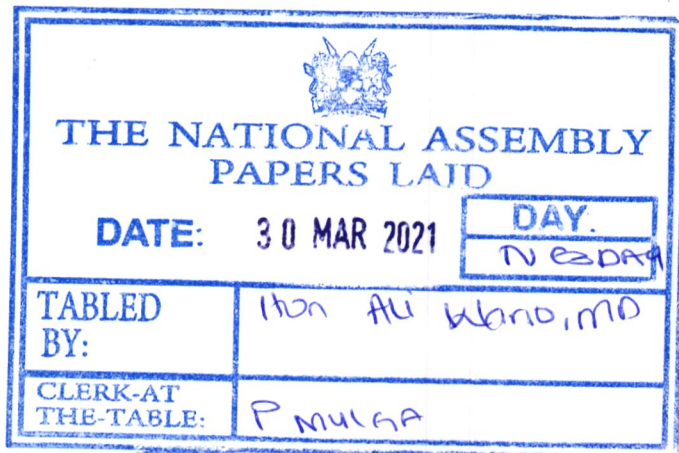 THE NATIONAL ASSEMBLY
PAPERS LAID
DATE: 30 MAR 2021
DAY.
TABLED
BY:
Hon Ali Wario, MP
CLERK-AT
THE-TABLE:
P MULGA